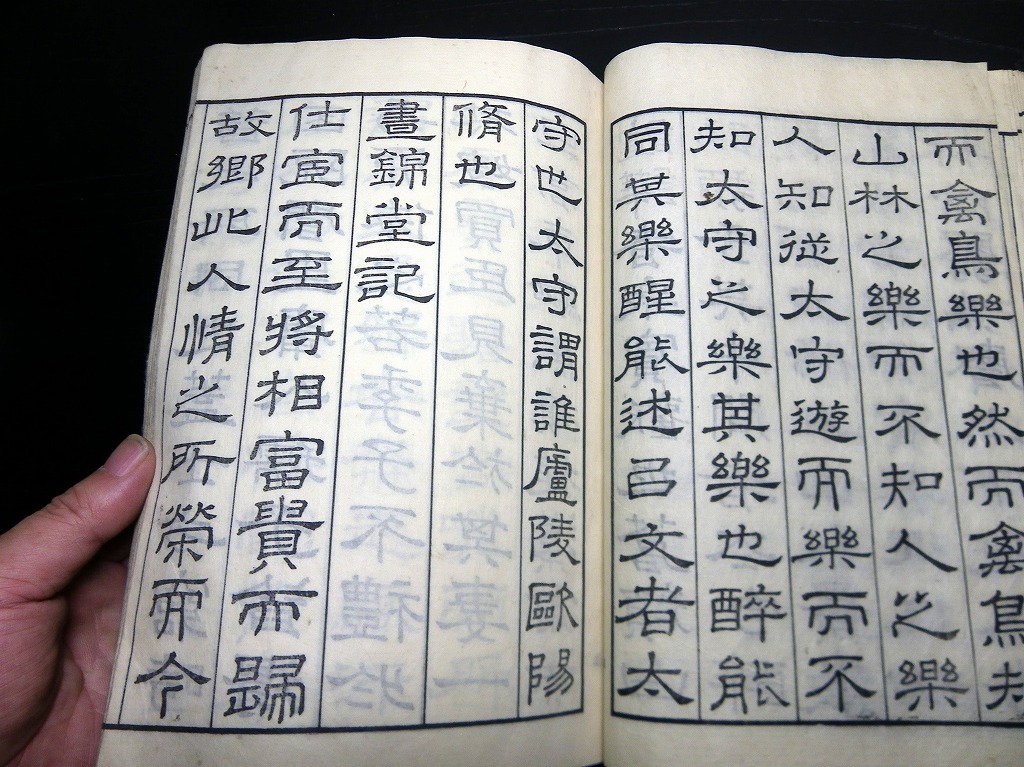 而禽鳥樂也然而禽鳥知
山林之樂而不知人之樂
人知從太守遊而樂而不
知太守之樂其樂也醉能
同其樂醒能述㠯文者太
守也太守謂誰廬陵歐陽
脩也
晝錦堂記
仕宦而至將相富貴而歸
故鄉此人情之所榮而今